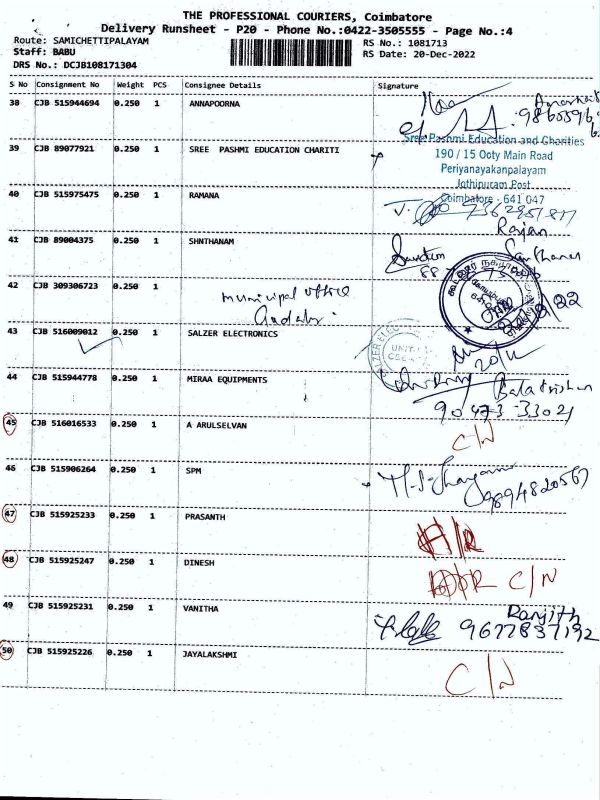 THE PROFESSIONAL COURIERS, Coimbatore
Delivery Runsheet - P20 - Phone No.:0422-3505555 - Page No.:4
Route: SAMICHETTIPALAYAM RS No.: 1081713
Staff: BABU RS Date: 20-Dec-2022
DRS No.: DCJB108171304
S No Consignment No Weight PCS Consignee Details Signature
38 CJB 515944694 0.250 1 ANNAPOORNA
39 CJB 89077921 0.250 1 SREE PASHMI EDUCATION CHARITI
Sree Pashmi Education and Charities
190 / 15 Ooty Main Road
Periyanayakanpalayam
Jothipuram Post
Coimbatore - 641 047
40 CJB 515975475 0.250 1 RAMANA
Rajan
41 CJB 89004375 0.250 1 SHNTHANAM
Santhanam
42 CJB 309306723 0.250 1 municipal office
43 CJB 516009012 0.250 1 SALZER ELECTRONICS
SALZER ELEC
UNIT
20/12
44 CJB 515944778 0.250 1 MIRAA EQUIPMENTS
Balakrishnan
90473-33021
45 CJB 516016533 0.250 1 A ARULSELVAN C/N
46 CJB 515906264 0.250 1 SPM
9894820567
47 CJB 515925233 0.250 1 PRASANTH
48 CJB 515925247 0.250 1 DINESH C/N
49 CJB 515925231 0.250 1 VANITHA Ranjith
9677837192
50 CJB 515925226 0.250 1 JAYALAKSHMI C/N